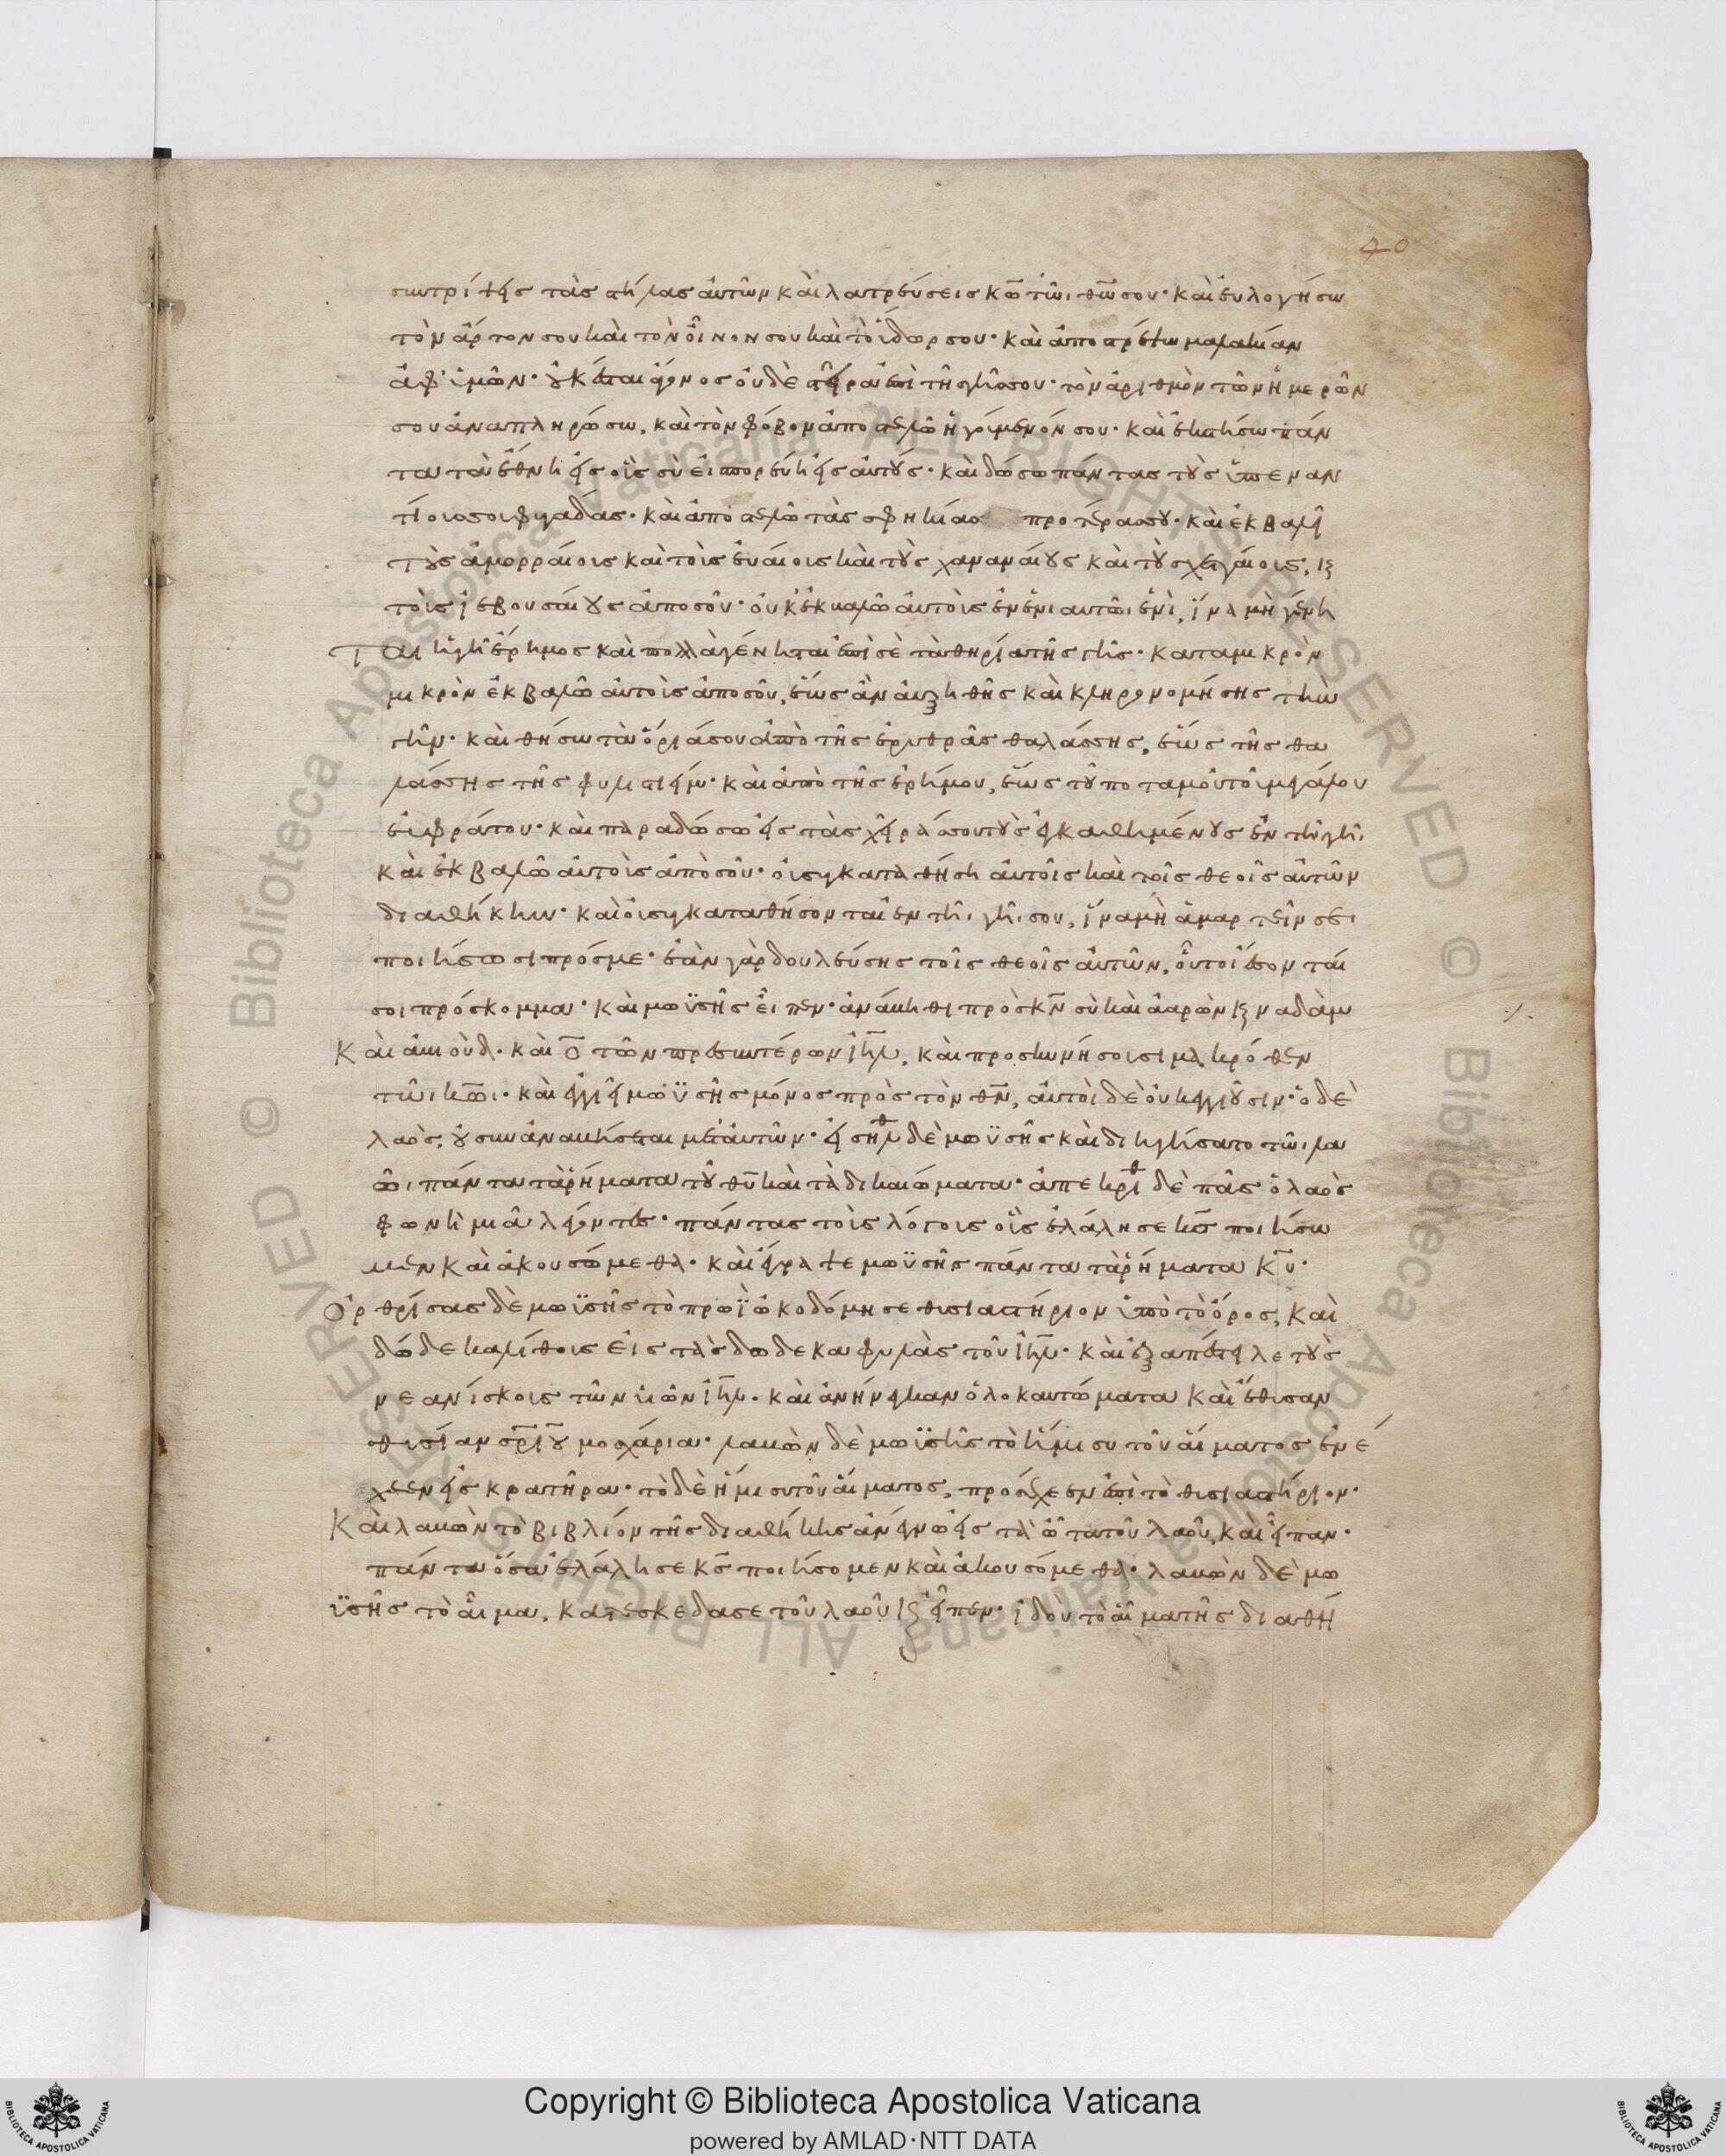 40
συντρίψεις τὰς στήλας αὐτῶν καὶ λατρεύσεις κω̅ τῶι θω̅ σου· καὶ εὐλογήσω
τὸν ἄρτον σου καὶ τὸν οἶνον σου καὶ τὸ ὕδωρ σου· καὶ ἀποστρέψω μαλακίαν
ἀφ' ὑμῶν· οὐκ ἔσται ἄγονος οὐδὲ στεῖρα ἐπὶ τῆς γῆς σου· τὸν ἀριθμὸν τῶν ἡμερῶν
σου ἀναπληρώσω, καὶ τὸν φόβον ἀποστελῶ ἡγούμενόν σου· καὶ ἐκστήσω πάν
τα τὰ ἔθνη εἰς οἷς σὺ εἰσπορεύη εἰς αὐτούς· καὶ δώσω πάντας τοὺς ὑπεναν
τίους σου φυγάδας· καὶ ἀποστελῶ τὰς σφηκίας προτέρας σου· καὶ ἐκβαλεῖ
τοὺς ἀμορραίοις καὶ τοὶς εὐαίοις καὶ τοὺς χαναναίους καὶ τοὺς χετταίοις, κ
τοὶς ἰεβουσαίους ἀπο σοῦ· οὐκ ἐκβαλῶ αὐτοὶς ἐν ἐνιαυτῶι ἑνὶ, ἵνα μὴ γένη
Ται ἡ γῆ ἔρημος καὶ πολλὰ γένηται ἐπὶ σὲ τὰ θηρία τῆς γῆς· κατα μικρὸν
μικρὸν ἐκβαλῶ αὐτοὶς ἀπο σοῦ, ἕως ἂν αὐξηθῆς καὶ κληρονομήσης τὴν
γῆν· καὶ θήσω τὰ ὅριά σου ἀπὸ τῆς ἐρυθρᾶς θαλάσσης, ἕως τῆς θα
λάσσης τῆς φυλιστιείμ· καὶ ἀπὸ τῆς ἐρήμου, ἕως τοῦ ποταμοῦ τοῦ μεγάλου
εὐφράτου· καὶ παραδώσω εἰς τὰς χεῖράς σου τοὺς ἐγκαθημένους ἐν τῆ γῆ·
καὶ ἐκβαλῶ αὐτοὶς ἀπὸ σοῦ· οὐ συγκαταθήση αὐτοῖς καὶ τοῖς θεοῖς αὐτῶν
διαθήκην· καὶ οὐ συγκαταθήσονται ἐν τῆι γῆι σου, ἵνα μὴ ἁμαρτεῖν σε
ποιήσωσι πρός με· ἐὰν γὰρ δουλεύσης τοῖς θεοῖς αὐτῶν, οὗτοι ἔσονταί
σοι πρόσκομμα· καὶ μωϋσῆς εἶπεν· ἀνάβηθι πρὸς κν̅ σὺ καὶ ἀαρὼν κ ναδὰμ
Καὶ ἀβιοὺδ· καὶ ο̅ τῶν πρεσβυτέρων ιη̅λ, καὶ προσκυνήσουσι μακρόθεν
τῶι κω̅ι· καὶ ἐγγιεῖ μωϋσῆς μόνος πρὸς τὸν θν̅, αὐτοὶ δὲ οὐκ ἐγγιοῦσιν· ὁ δὲ
λαὸς, οὐ συναναβήσεται μετ' αὐτῶν· εἰσῆλθ δὲ μωϋσῆς καὶ διηγήσατο τῶι λα
ῶι πάντα τὰ ῥήματα τοῦ θυ̅ καὶ τὰ δικαιώματα· ἀπεκρίθ δὲ πᾶς ὁ λαὸς
φωνῆ μιᾶ λέγοντες· πάντας τοὶς λόγοις οἷς ἐλάλησε κς̅ ποιήσω
μεν καὶ ἀκουσώμεθα· καὶ ἔγραψε μωϋσῆς πάντα τὰ ῥήματα κυ̅·
Ορθρίσας δὲ μωϋσῆς τὸ πρωῒ ὠκοδόμησε θυσιαστήριον ὑπὸ τὸ ὄρος, καὶ
δώδεκα λίθοις εἰς τὰς δώδεκα φυλὰς τοῦ ιη̅λ· καὶ ἐξαπέστειλε τοὺς
νεανίσκοις τῶν υἱῶν ιη̅λ· καὶ ἀνήνεγκαν ὁλοκαυτώματα καὶ ἔθυσαν
θυσίαν σρ̅ίου μοσχάρια· λαβὼν δὲ μωϋσῆς τὸ ἥμισυ τοῦ αἵματος ἐνέ
χεεν εἰς κρατῆρα· τὸ δὲ ἥμισυ τοῦ αἵματος, προσέχεεν ἐπὶ τὸ θυσιαστήριον·
Καὶ λαβὼν τὸ βιβλίον τῆς διαθήκης ἀνέγνω εἰς τὰ ὦτα τοῦ λαοῦ, καὶ εἶπαν·
πάντα ὅσα ἐλάλησε κς̅ ποιήσομεν καὶ ἀκουσόμεθα· λαβὼν δὲ μω
ϋσῆς τὸ αἷμα, κατεσκέδασε τοῦ λαοῦ κ εἶπεν· ἰδοὺ τὸ αἷμα τῆς διαθή
Copyright © Biblioteca Apostolica Vaticana
powered by AMLAD·NTT DATA